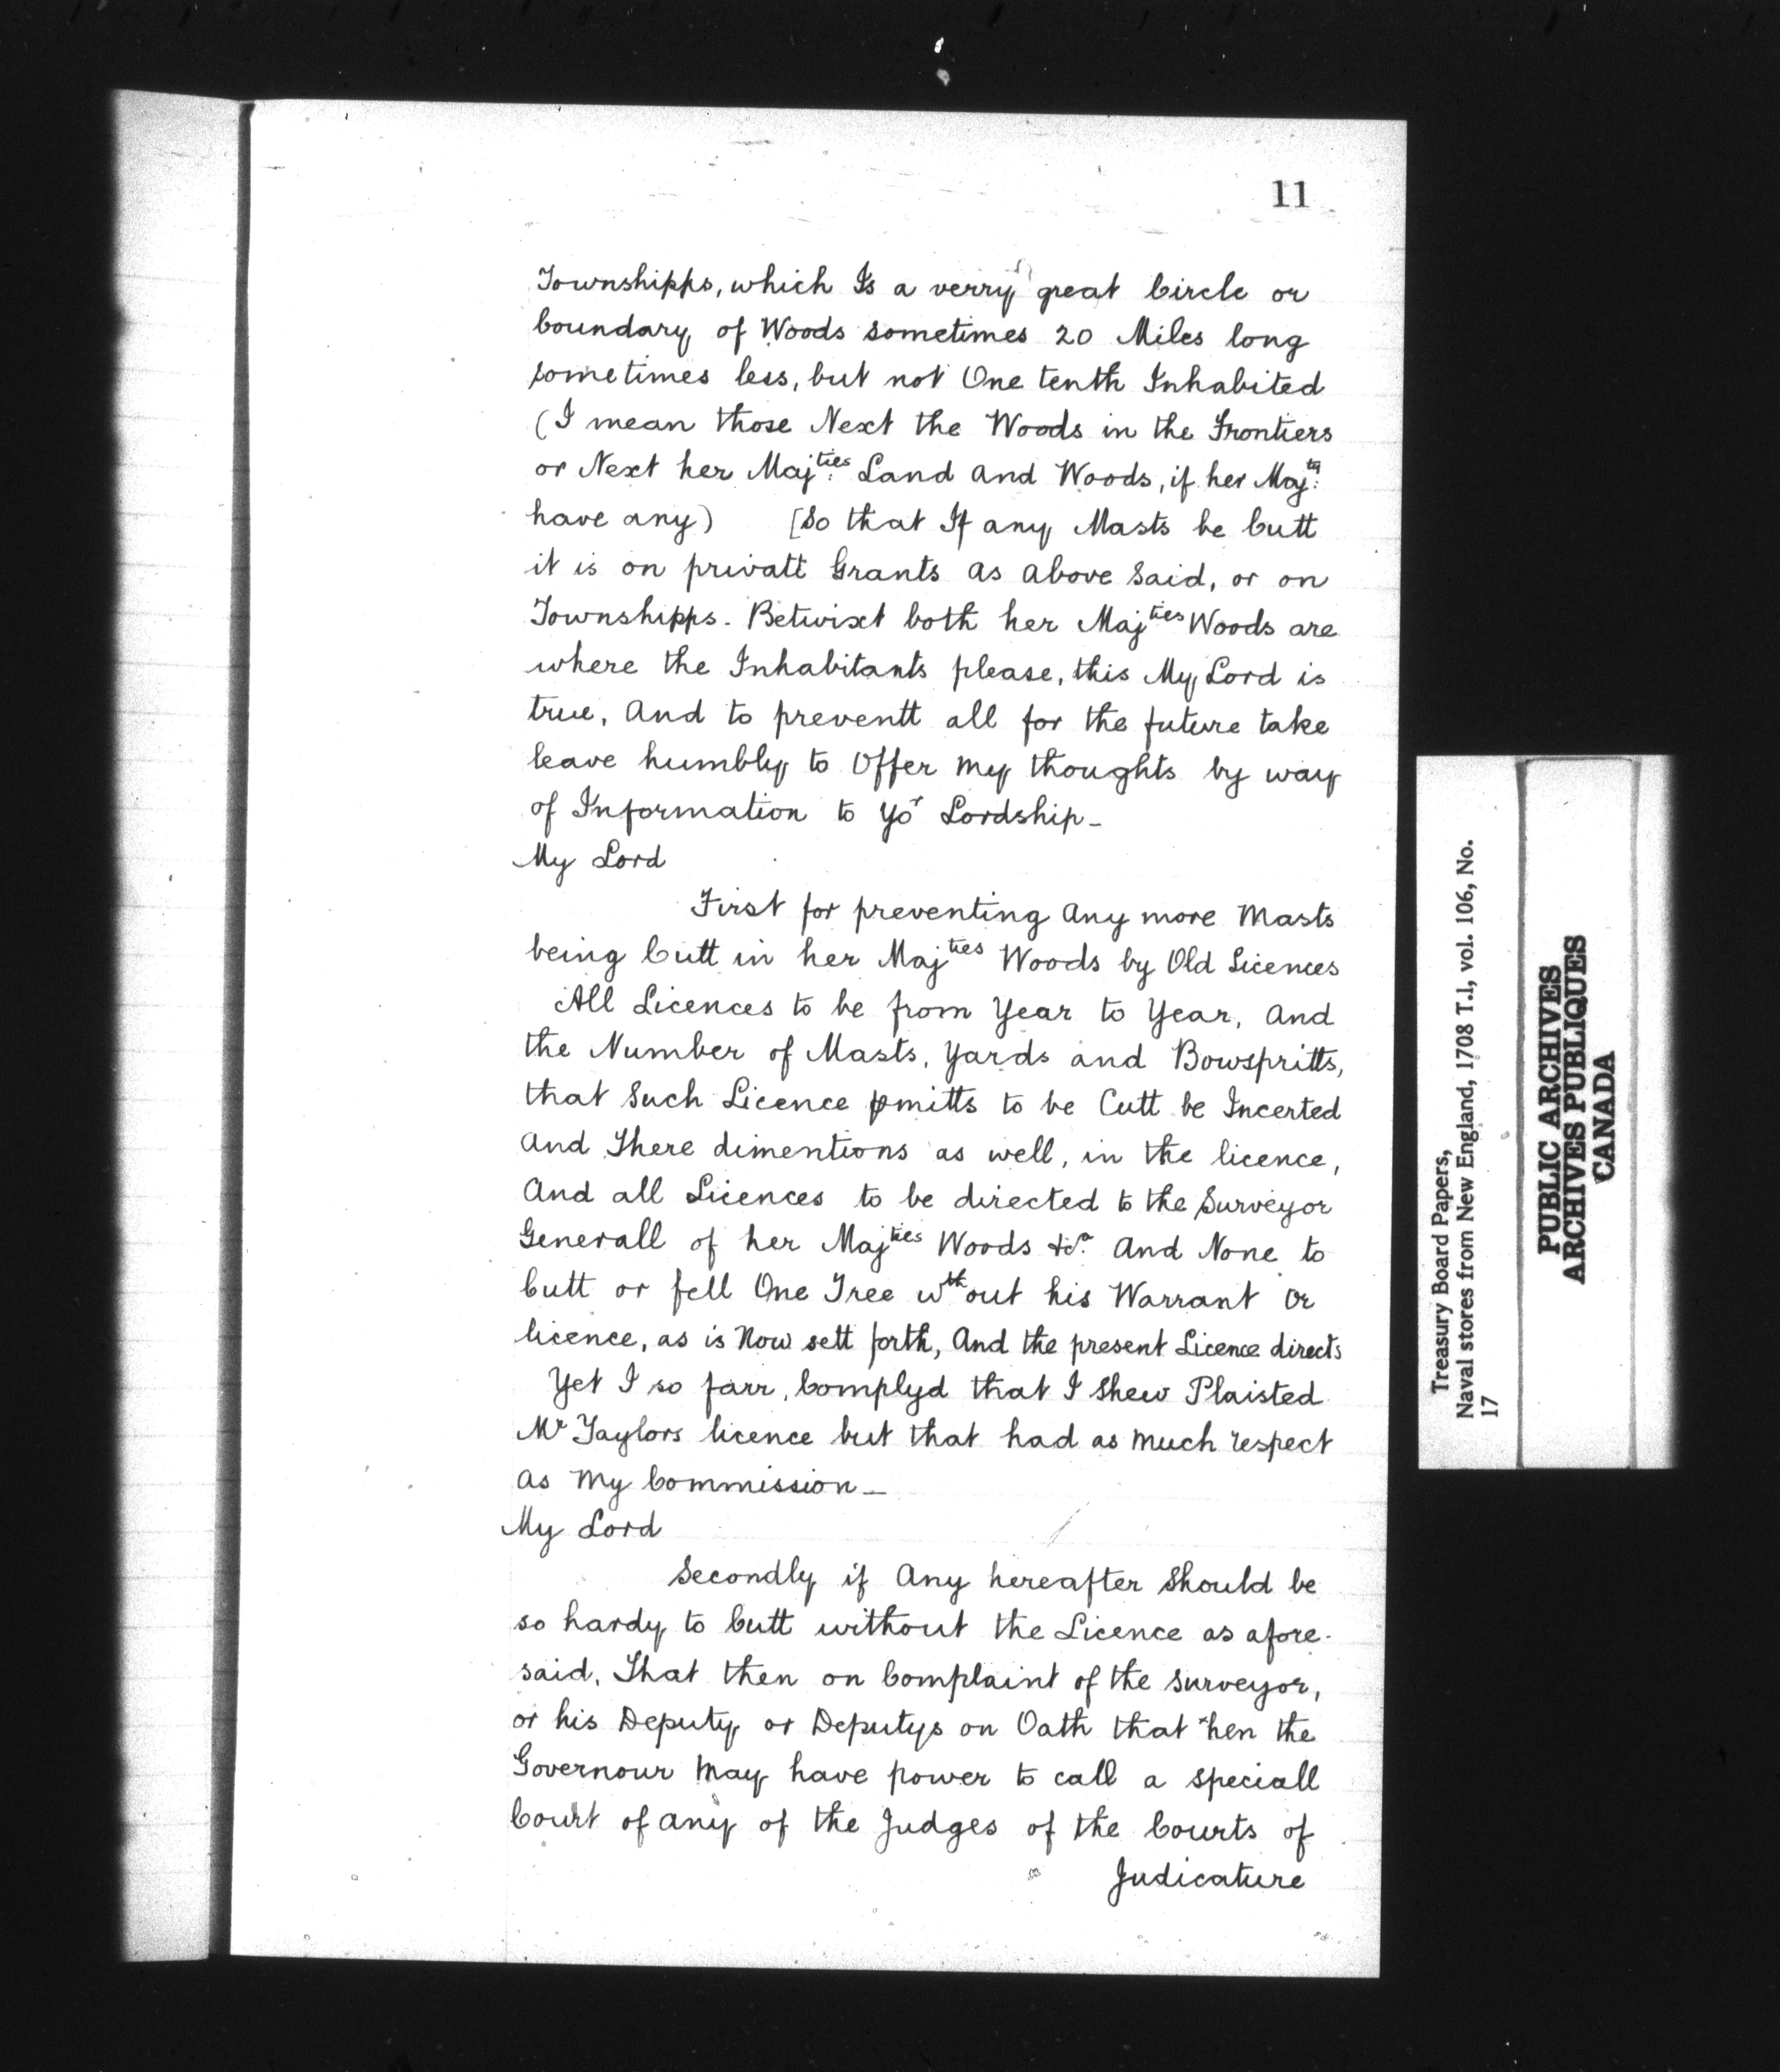 11
Townshipps, which Is a verry great Circle or
boundary of Woods sometimes 20 Miles long
sometimes less, but not One tenth Inhabited
(I mean those Next the Woods in the Frontiers
or Next her Maj:ties Land and Woods, if her Maj:ty
have any) [So that If any Masts be Cutt
it is on privatt Grants as above said, or on
Townshipps. Betwixt both her Majties Woods are
where the Inhabitants please, this My Lord is
true, And to preventt all for the future take
leave humbly to Offer my thoughts by way
of Information to Yor Lordship_
My Lord
First for preventing Any more Masts
being Cutt in her Majties Woods by Old Licences
All Licences to be from Year to Year, And
the Number of Masts, Yards and Bowspritts,
that Such Licence pmitts to be Cutt be Incerted
And There dimentions as well, in the licence,
And all Licences to be directed to the Surveyor
Generall of her Majties Woods &ca. And None to
Cutt or fell One Tree wthout his Warrant Or
licence, as is Now sett forth, And the present Licence directs
Yet I so farr, Complyd that I Shew Plaisted
Mr Taylors licence but that had as much respect
as My Commission_
My Lord
Secondly if Any hereafter Should be
so hardy to Cutt without the Licence as afore-
said, That then on Complaint of the Surveyor,
or his Deputy or Deputys on Oath that then the
Governour May have power to call a speciall
Court of any of the Judges of the Courts of
Judicature
Treasury Board Papers,
Naval stores from New England, 1708 T.1, vol. 106, No.
17
PUBLIC ARCHIVES
ARCHIVES PUBLIQUES
CANADA